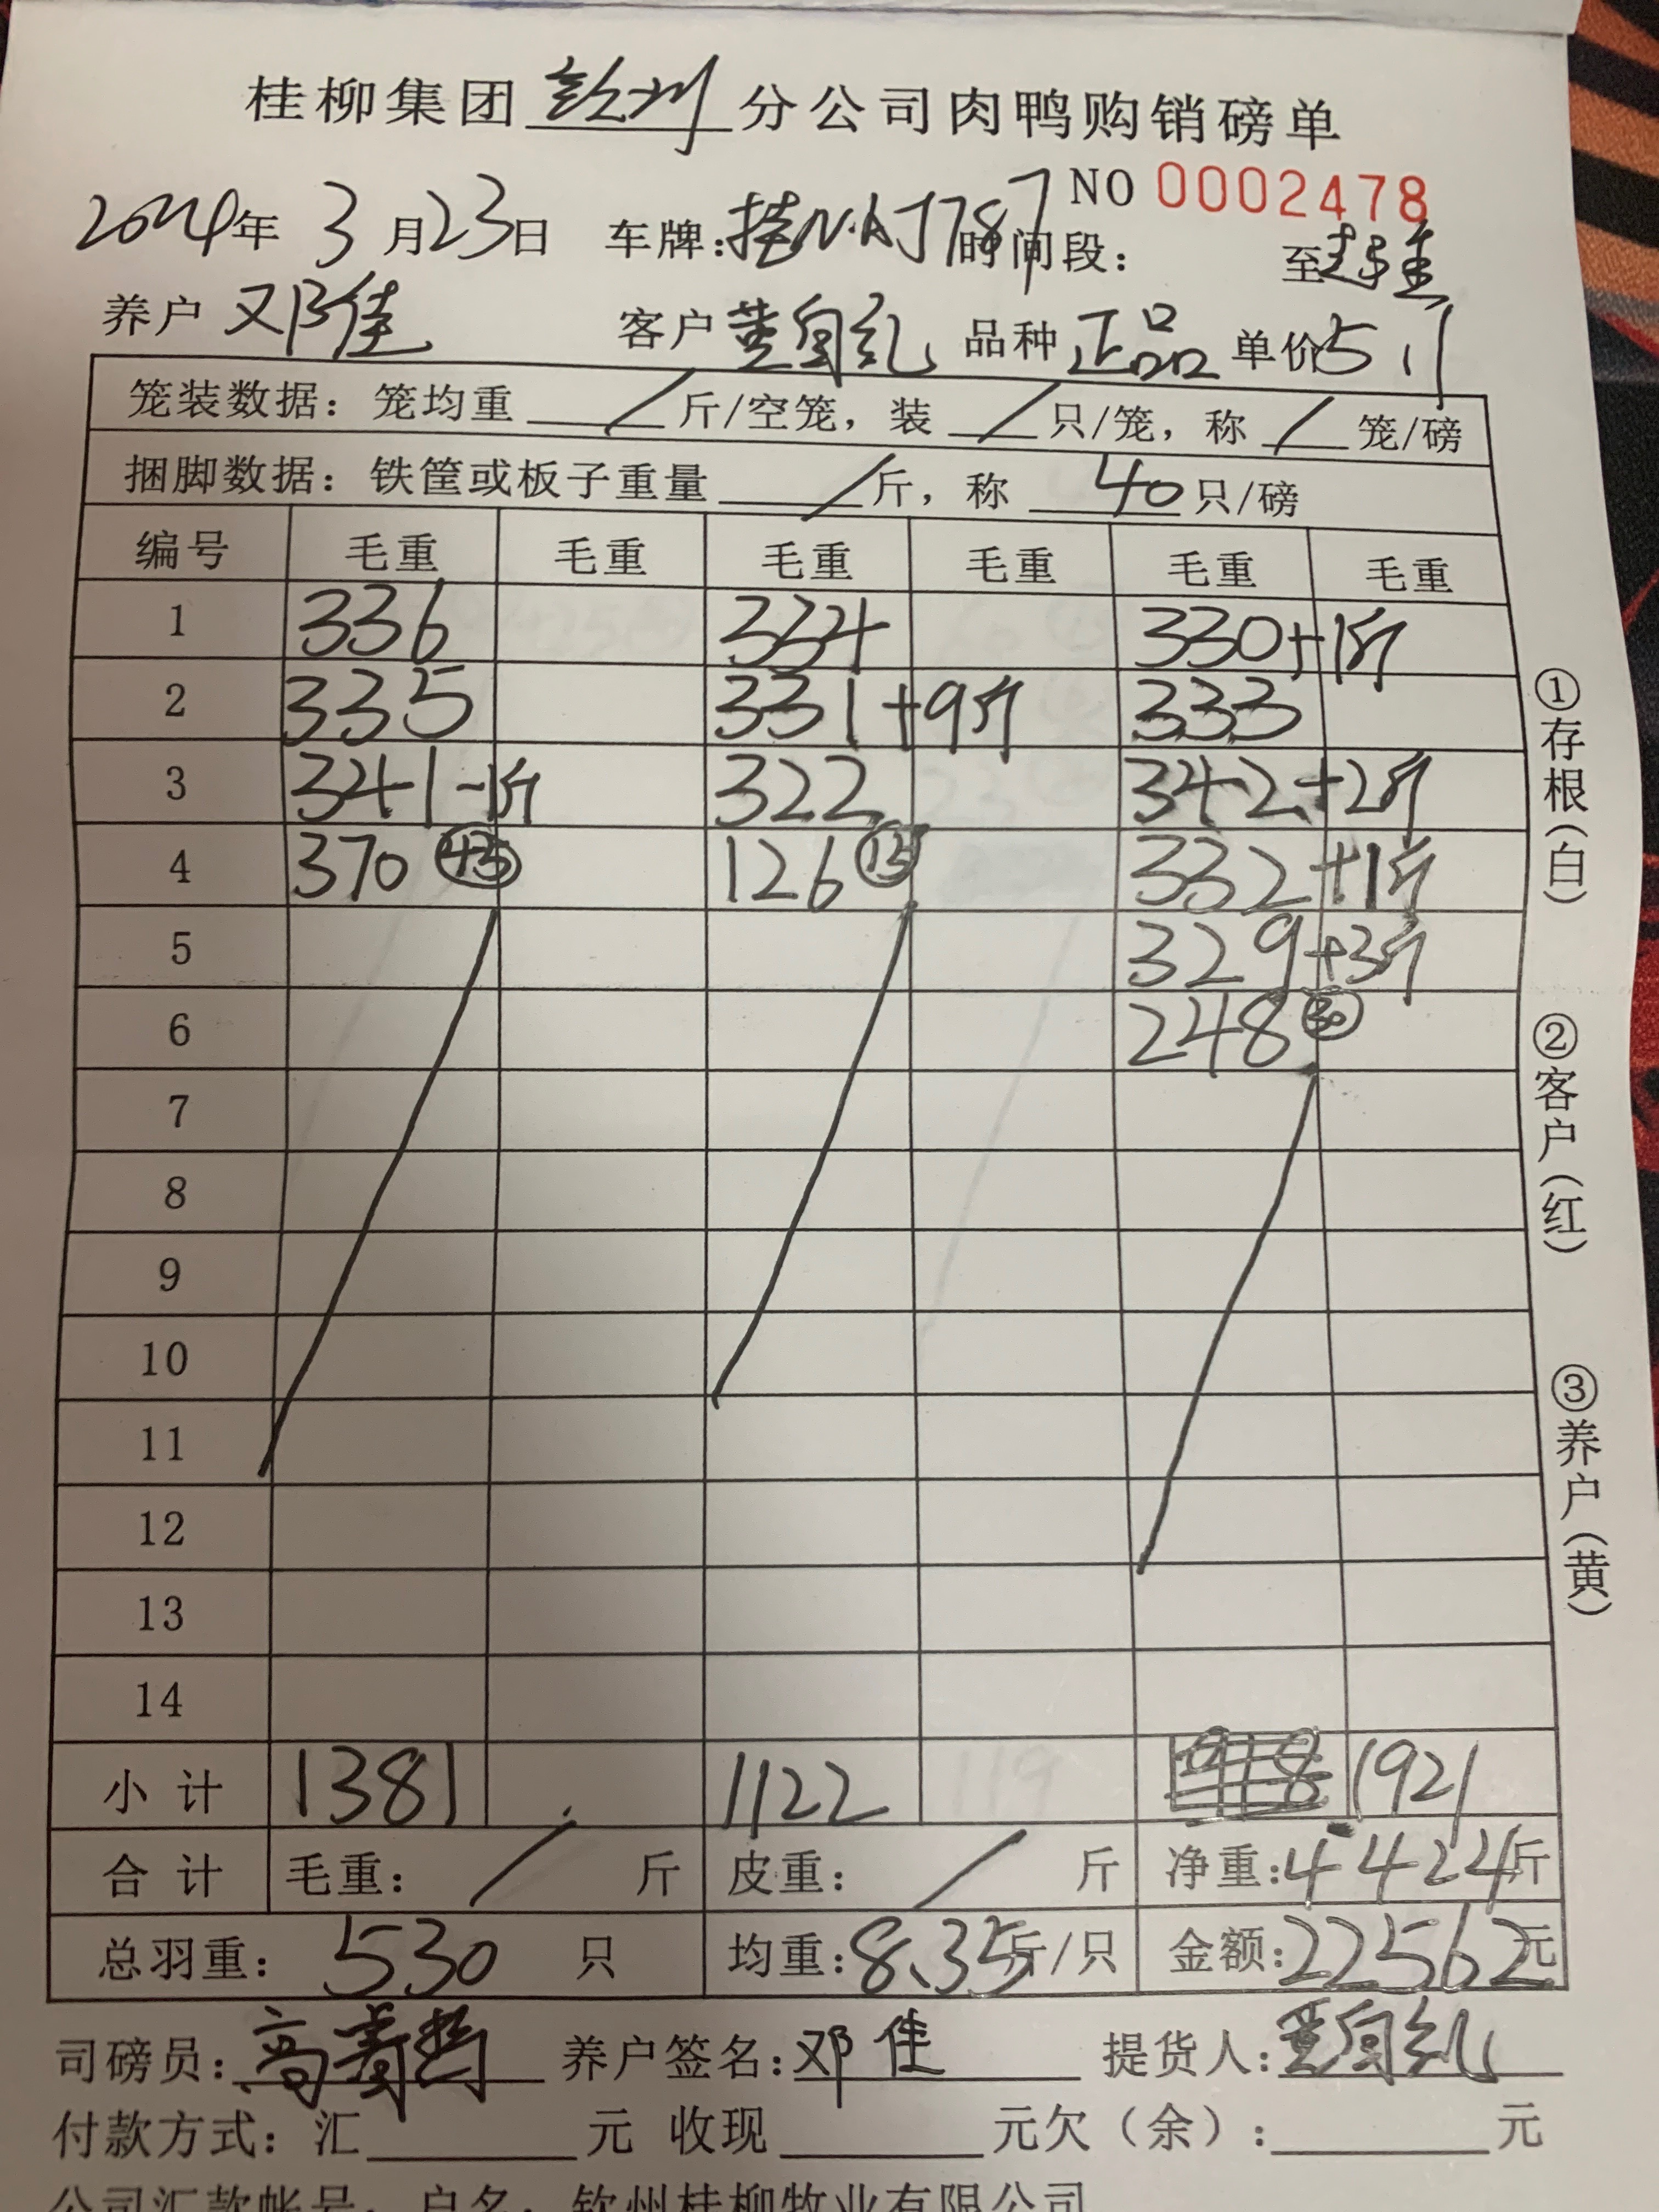 桂柳集团钦州分公司肉鸭购销磅单
NO 0002478
2024年 3月23日 车牌:桂N·AJ787 时间段: 至
养户 邓佳 客户 黄自礼 品种 正品 单价5.1
笼装数据: 笼均重 / 斤/空笼, 装 / 只/笼, 称 / 笼/磅
捆脚数据: 铁筐或板子重量 / 斤, 称 40 只/磅
编号 毛重 毛重 毛重 毛重 毛重 毛重
1 336 334 330+1斤
2 335 331+9斤 333
3 341-1斤 322 342+2斤
4 370 43 126 15 332+1斤
5 329+3斤
6 248 30
7
8
9
10
11
12
13
14
小计 1381 1122 1918 1921
合计 毛重: / 斤 皮重: / 斤 净重:4424斤
总羽重: 530 只 均重:8.35斤/只 金额:22562元
司磅员:高寿哲 养户签名:邓佳 提货人:黄自礼
付款方式: 汇 元 收现 元欠(余): 元
公司汇款帐号: 户名: 钦州桂柳牧业有限公司
①存根(白)
②客户(红)
③养户(黄)